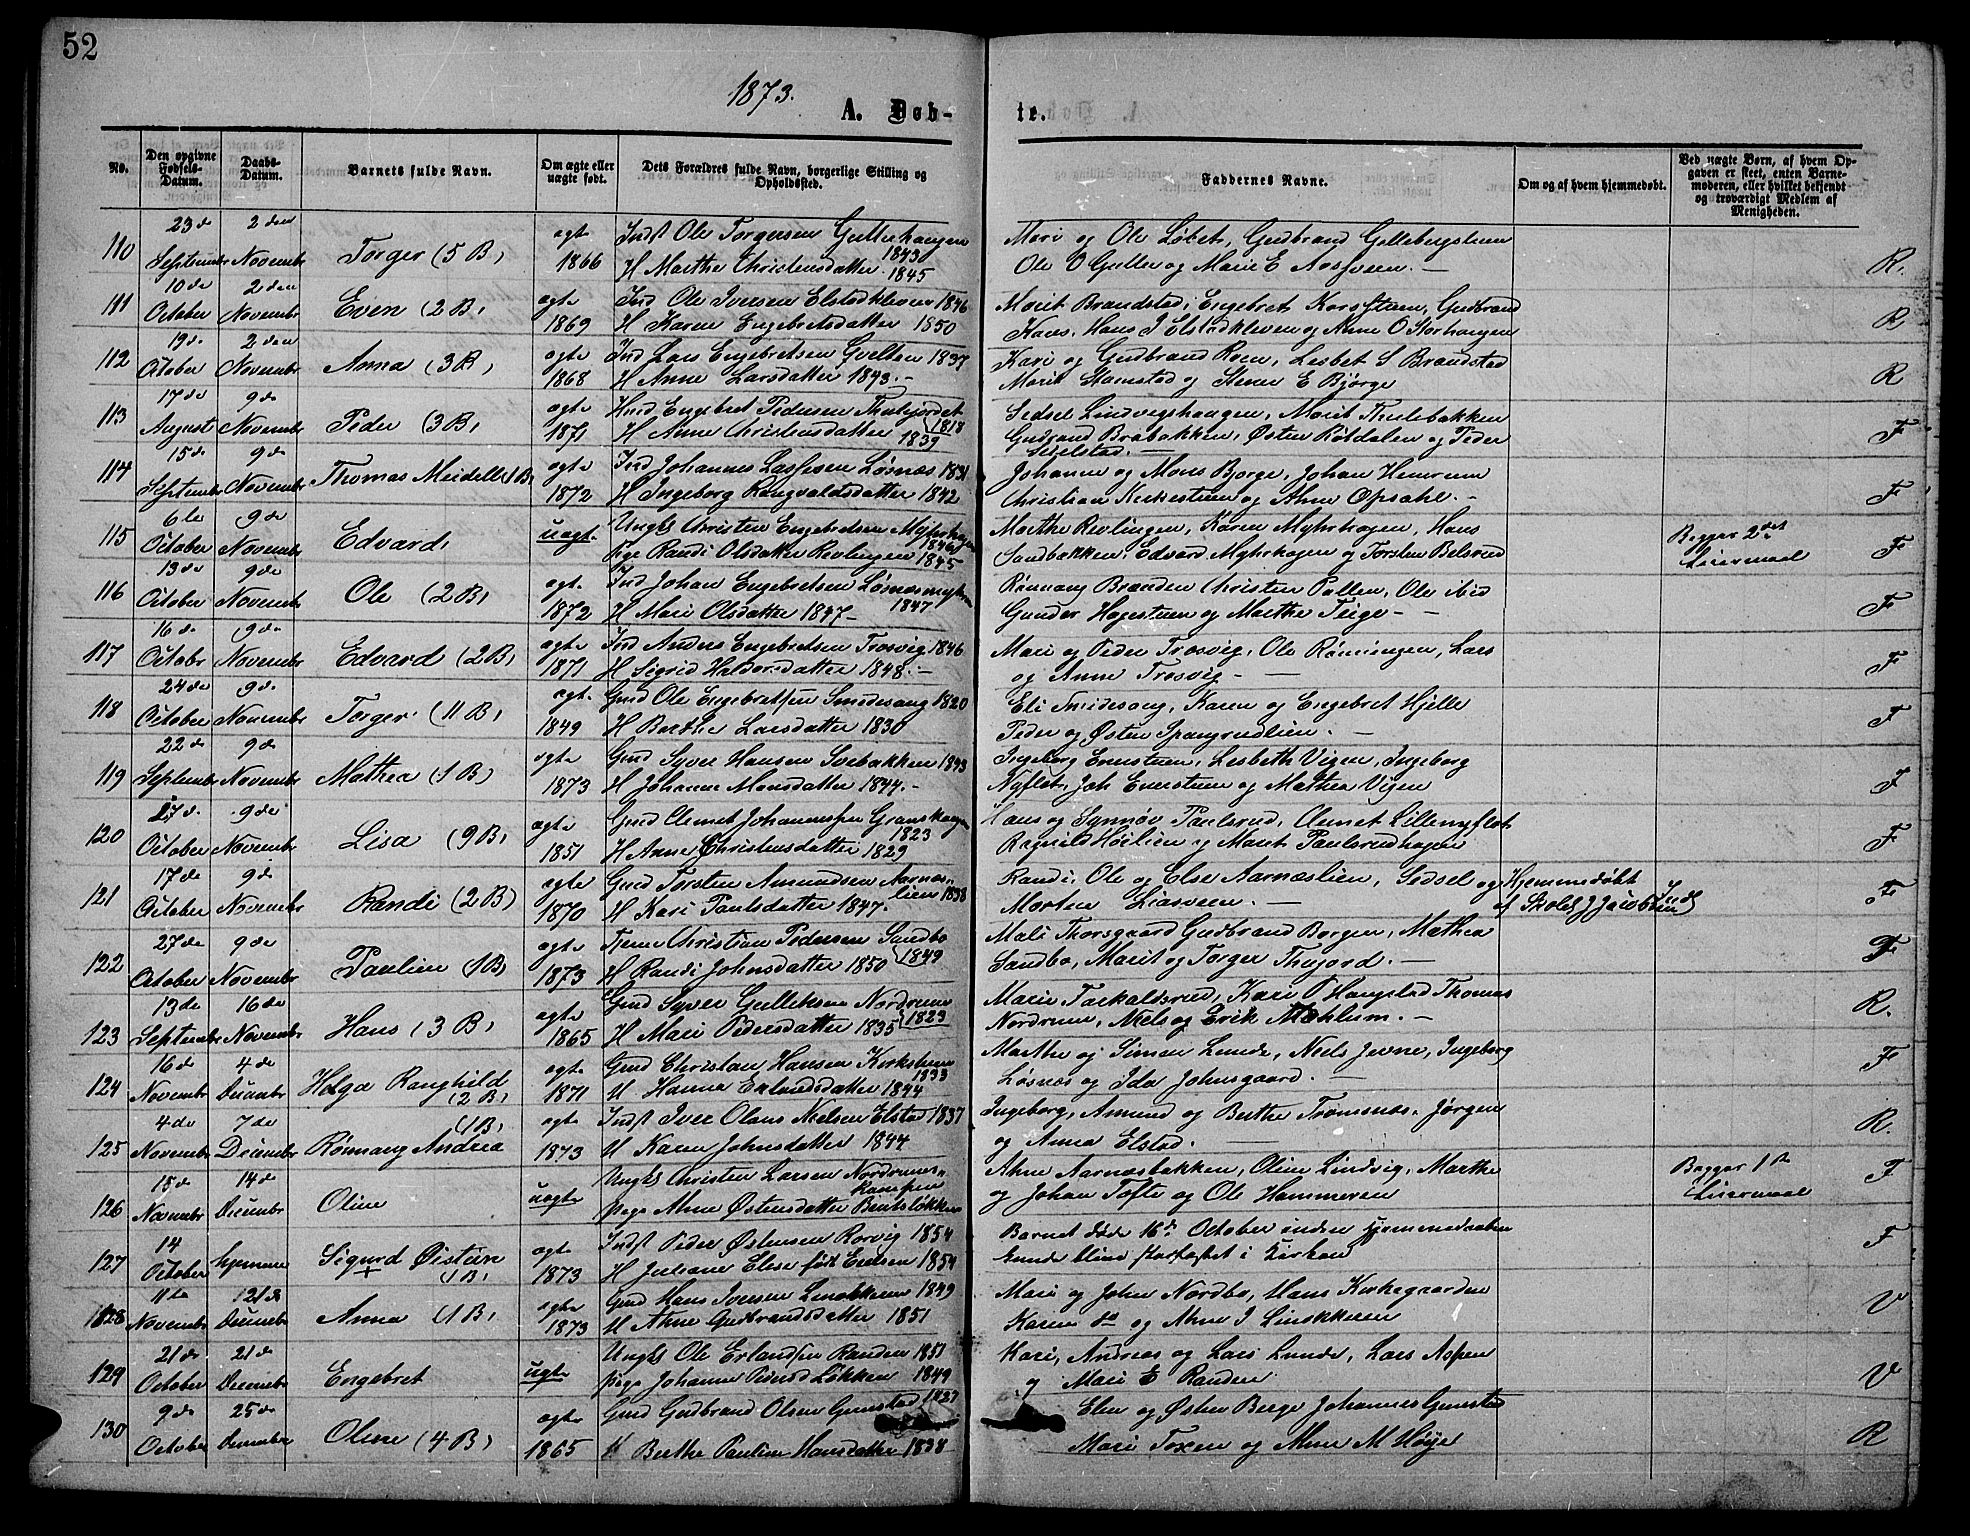 52
1873.
A. Døb-
te.
No.
Den opgivne Fødsels-Datum.
Daabs-Datum.
Barnets fulde Navn.
Om ægte eller uægte født.
Dets Forældres fulde Navn, borgerlige Stilling og Opholdssted.
Faddernes Navne.
Om og af hvem hjemmedøbt.
Ved uægte Børn, af hvem Opgaven er skeet, enten Barnemoderen, eller hvilket bekjendt og troværdigt Medlem af Menigheden.
110 23de September 2den November Torger (5 B) ægte 1866 Indst Ole Torgersen Gullerhaugen 1843
H Marthe Christensdatter 1845
Mari og Ole Løbet, Gudbrand Gillebergstuen
Ole O Guller og Marie E Aasveen. — R.
111 10de October 2den November Even (2 B) ægte 1869 Ind Ole Iversen Elstadkleven 1846
H Karen Engebretsdatter 1850
Marit Brandstad, Engebret Korsstuen, Gudbrand
Haves, Hans I Elstadkleven og Anne O Storhaugen R
112 19de October 2den November Anna (3 B) ægte 1868 Ind Lars Engebretsen Gvelten 1837
H Anne Larsdatter 1843. -
Kari og Gudbrand Roen, Lesbet S Brandstad
Marit Stamstad og Stener E Bjørge R
113 17de August 9de November Peder (3 B) ægte 1871 Hmd Engebret Pedersen Thulejordet 1818
H Anne Christensdatter 1839
Sedsel Lindvigshaugen, Marit Thulebakken
Gudbrand Brobakken, Østen Rotdalen og Peder
Seielstad. — F
114 15de September 9de November Thomas Meidell (1 B) ægte 1872 Ind Johannes Lassesen Løsnæs 1831
H Ingeborg Rangvaldsdatter 1842
Johanne og Mons Borge, Johan Hemrum
Christian Kirkestuen og Ahne Opsahl. - F
115 6te October 9de November Edvard uægt. Ungk Christen Engebretsen Myhrhagen 1846
Pige Randi Olsdatter Revlingen 1845
Marthe Revlingen, Karen Myhrhagen, Hans
Sandbakken, Edvard Myhrhagen og Torsten Belsrud
Begges 2det Leiermaal F
116 13de October 9de November Ole (2 B) ægte 1872 Ind Johan Engebretsen Løsnæsmyhren 1847
H Mari Olsdatter 1847 -
Rønnaug Brænden Christen Pallen, Ole ibid
Gunder Hagestuen og Marthe Teige - F
117 16de October 9de November Edvard (2 B) ægte 1871 Ind Anders Engebretsen Trosvig 1846
H Sigrid Haldorsdatter 1848. —
Mari og Peder Trosvig, Ole Rønningen, Lars
og Anne Trosvig - — F
118 24de October 9de November Torger (11 B) ægte 1849 Gmd Ole Engebretsen Smidesang 1820
H Berthe Larsdatter 1830
Eli Smidesang, Karen og Engebret Hjelle
Peder og Østen Spangrudlien. — F
119 22de September 9de November Mathea (1 B) ægte 1873 Gmd Syver Hansen Svebakken 1843
H Johanne Monsdatter 1844. -
Ingeborg Enerstuen, Lesbeth Vigen, Ingeborg
Nyflot, Joh Enerstuen og Mathea Vigen F
120 27de October 9de November Lisa (9 B) ægte 1851 Gmd Clemet Johannessen Granskogen 1823
H Anne Christensdatter 1829
Hans og Synnøv Paulsrud, Clemet Lillenyflot
Ragnild Høilien og Marit Paulsrudhagen F
121 17de October 9de November Randi (2 B) ægte 1870 Gmd Torsten Amundsen Aarnæslien 1838
H Kari Paulsdatter 1847.
Randi, Ole og Else Aarnæslien, Sedsel og
Morten Liasveen. —
Hjemmedøbt af Skolel. J Jacobsen Lunde F
122 27de October 9de November Pauline (1 B) ægte 1873 Tjener Christian Pedersen Sandbo 1849
H Randi Johnsdatter 1850
Mali Thorsgaard Gudbrand Borgen, Mathea
Sandbo, Marit og Torger Thujord. — F
123 13de September 16de November Hans (3 B) ægte 1865 Gmd Syver Gulleksen Nordrum 1823
H Mari Pedersdatter 1835
Marie Taskaldsrud, Kari O Haugstad Thomas
Nordrum, Niels og Erik Mæhlum. — R.
124 16de November 4de December Helga Ranghild (2 B) ægte 1871 Gmd Christian Hansen Kirkestuen 1833
H Hanna Erlandsdatter 1844
Marthe og Simen Lunde, Niels Jevne, Ingeborg
Løsnæs og Ida Johnsgaard. F
125 4de November 7de December Rønnaug Andrea (1 B) ægte 1873 Indst Iver Olaus Nielsen Elstad 1837
H Karen Johnsdatter 1844
Ingeborg, Amund og Berthe Tromsnæs, Jørgen
og Anna Elstad. — R.
126 15de November 14de December Oline uægte Ungk Christen Larsen Nordrumskampen
pige Ahne Østensdatter Bentsløkken
Ahne Aarnæsbakken, Oline Lindvig, Marthe
og Johan Tofte og Ole Hammeren
Begges 1ste Leiermaal F
127 14 October hjemme Sigurd Øistein + (1 B) ægte 1873 Indst Peder Østensen Rorvig 1854
H Juliane Elise født Evensen 1854
Barnet døde 16de October inden hjemmedaaben
kunde blive stadfæstet i Kirken F
128 11te November 21de December Anna (1 B) ægte 1873 Gmd Hans Iversen Linløkken 1849
H Ahne Gudbrandsdatter 1851
Mari og John Nordbo, Hans Kirkegaarden
Karen do og Ahne I Linløkken V
129 21de October 21de December Engebret uægte Ungk Ole Erlandsen Randen 1851
pige Johanne Pedersd Løkken 1849
Kari, Andreas og Lars Lunde, Lars Aspen
og Mari E Randen. V
130 9de October 25de December Oline (4 B) ægte 1865 Gmd Gudbrand Olsen Gunstad 1827
H Berthe Pauline Hansdatter 1838
Elen og Østen Berge Johannes Gunstad
Mari Toxen og Ahne M Høye R